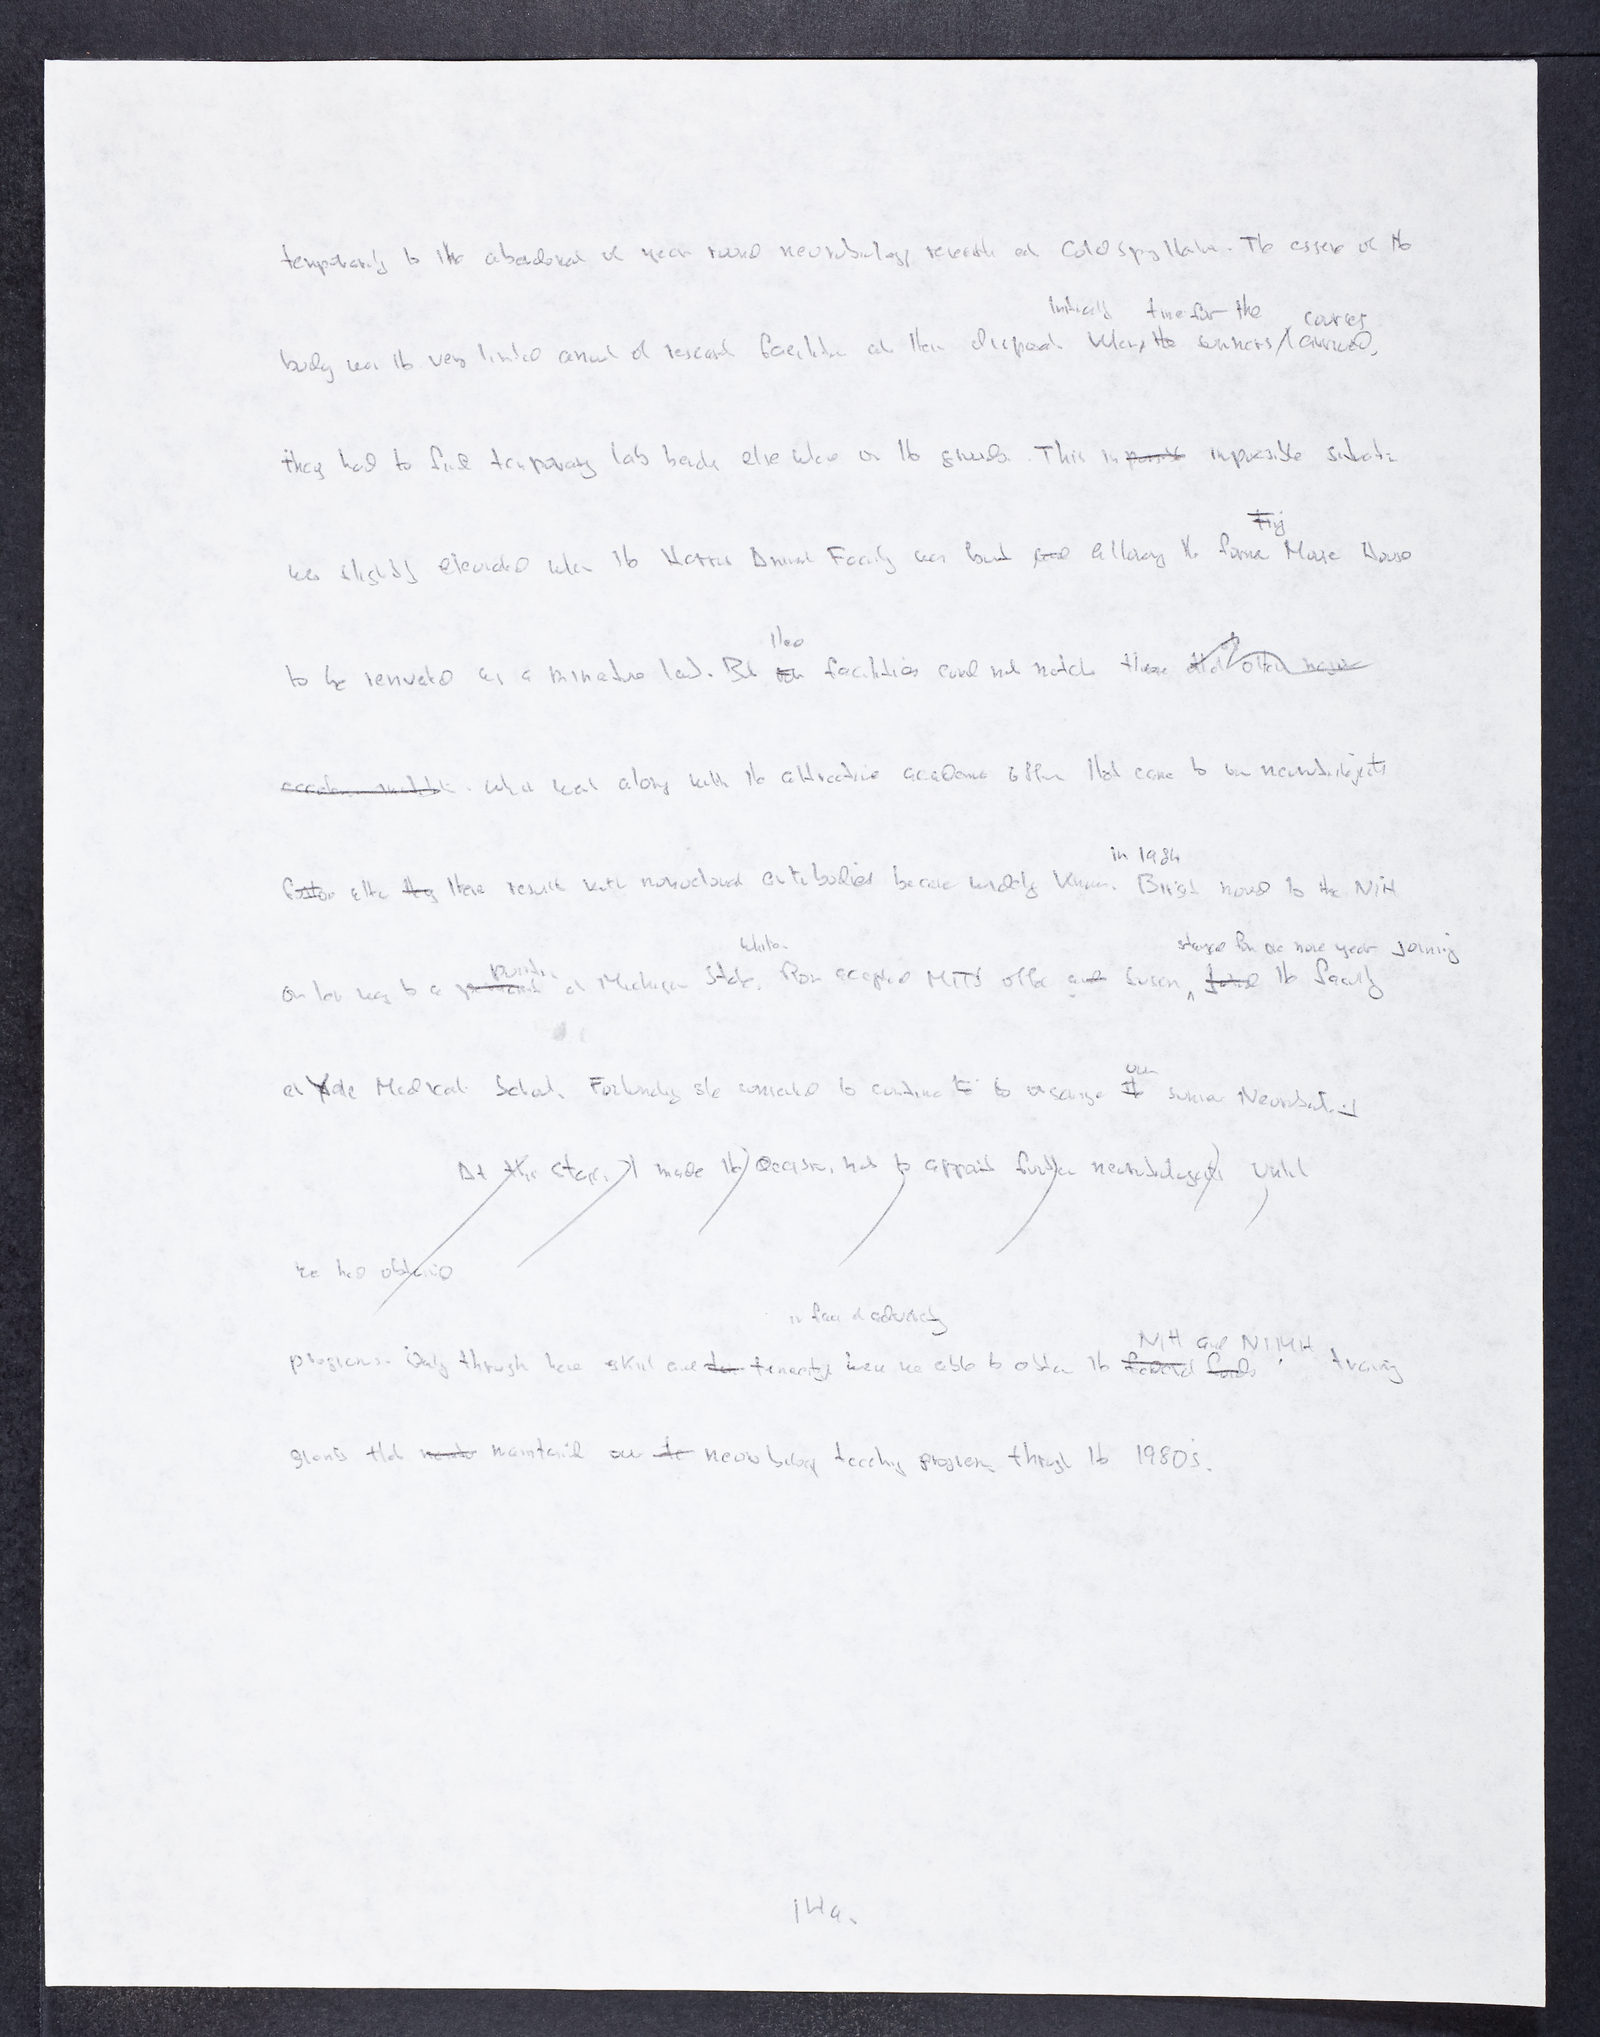 temporarily to the abandonment of year round neurobiology research at Cold Spring Harbor. The essence of the
initially time for the courses
body was the very limited amount of research facilities at their disposal. When the summers arrived,
they had to find temporary lab benches elsewhere on the grounds. This impossible situation
tiny
was slightly alleviated when the Harris Animal Facility was built and allowing the former Mouse House
to be renovated as a miniature lab. But facilities could not match those
What went along with the attractive academic offers that came to our neurobiologists
in 1984
after they these results with monoclonal antibodies became widely known. Birgit moved to the NIH
while stayed for one more year joining
on her way to a at Michigan State. Ron accepted MIT's offer and Susan the faculty
our
at Yale Medical School. Fortunately she consented to continue to arrange summer Neurobiol.
At this stage, I made the decision not to appoint further neurobiologists until
we had obtained
in face of adversity
NIH and NIMH
programs. Only through here skill and tenacity were we able to obtain the federal funds training
grants that maintained our neurobiology teaching programs through the 1980's.
14a.